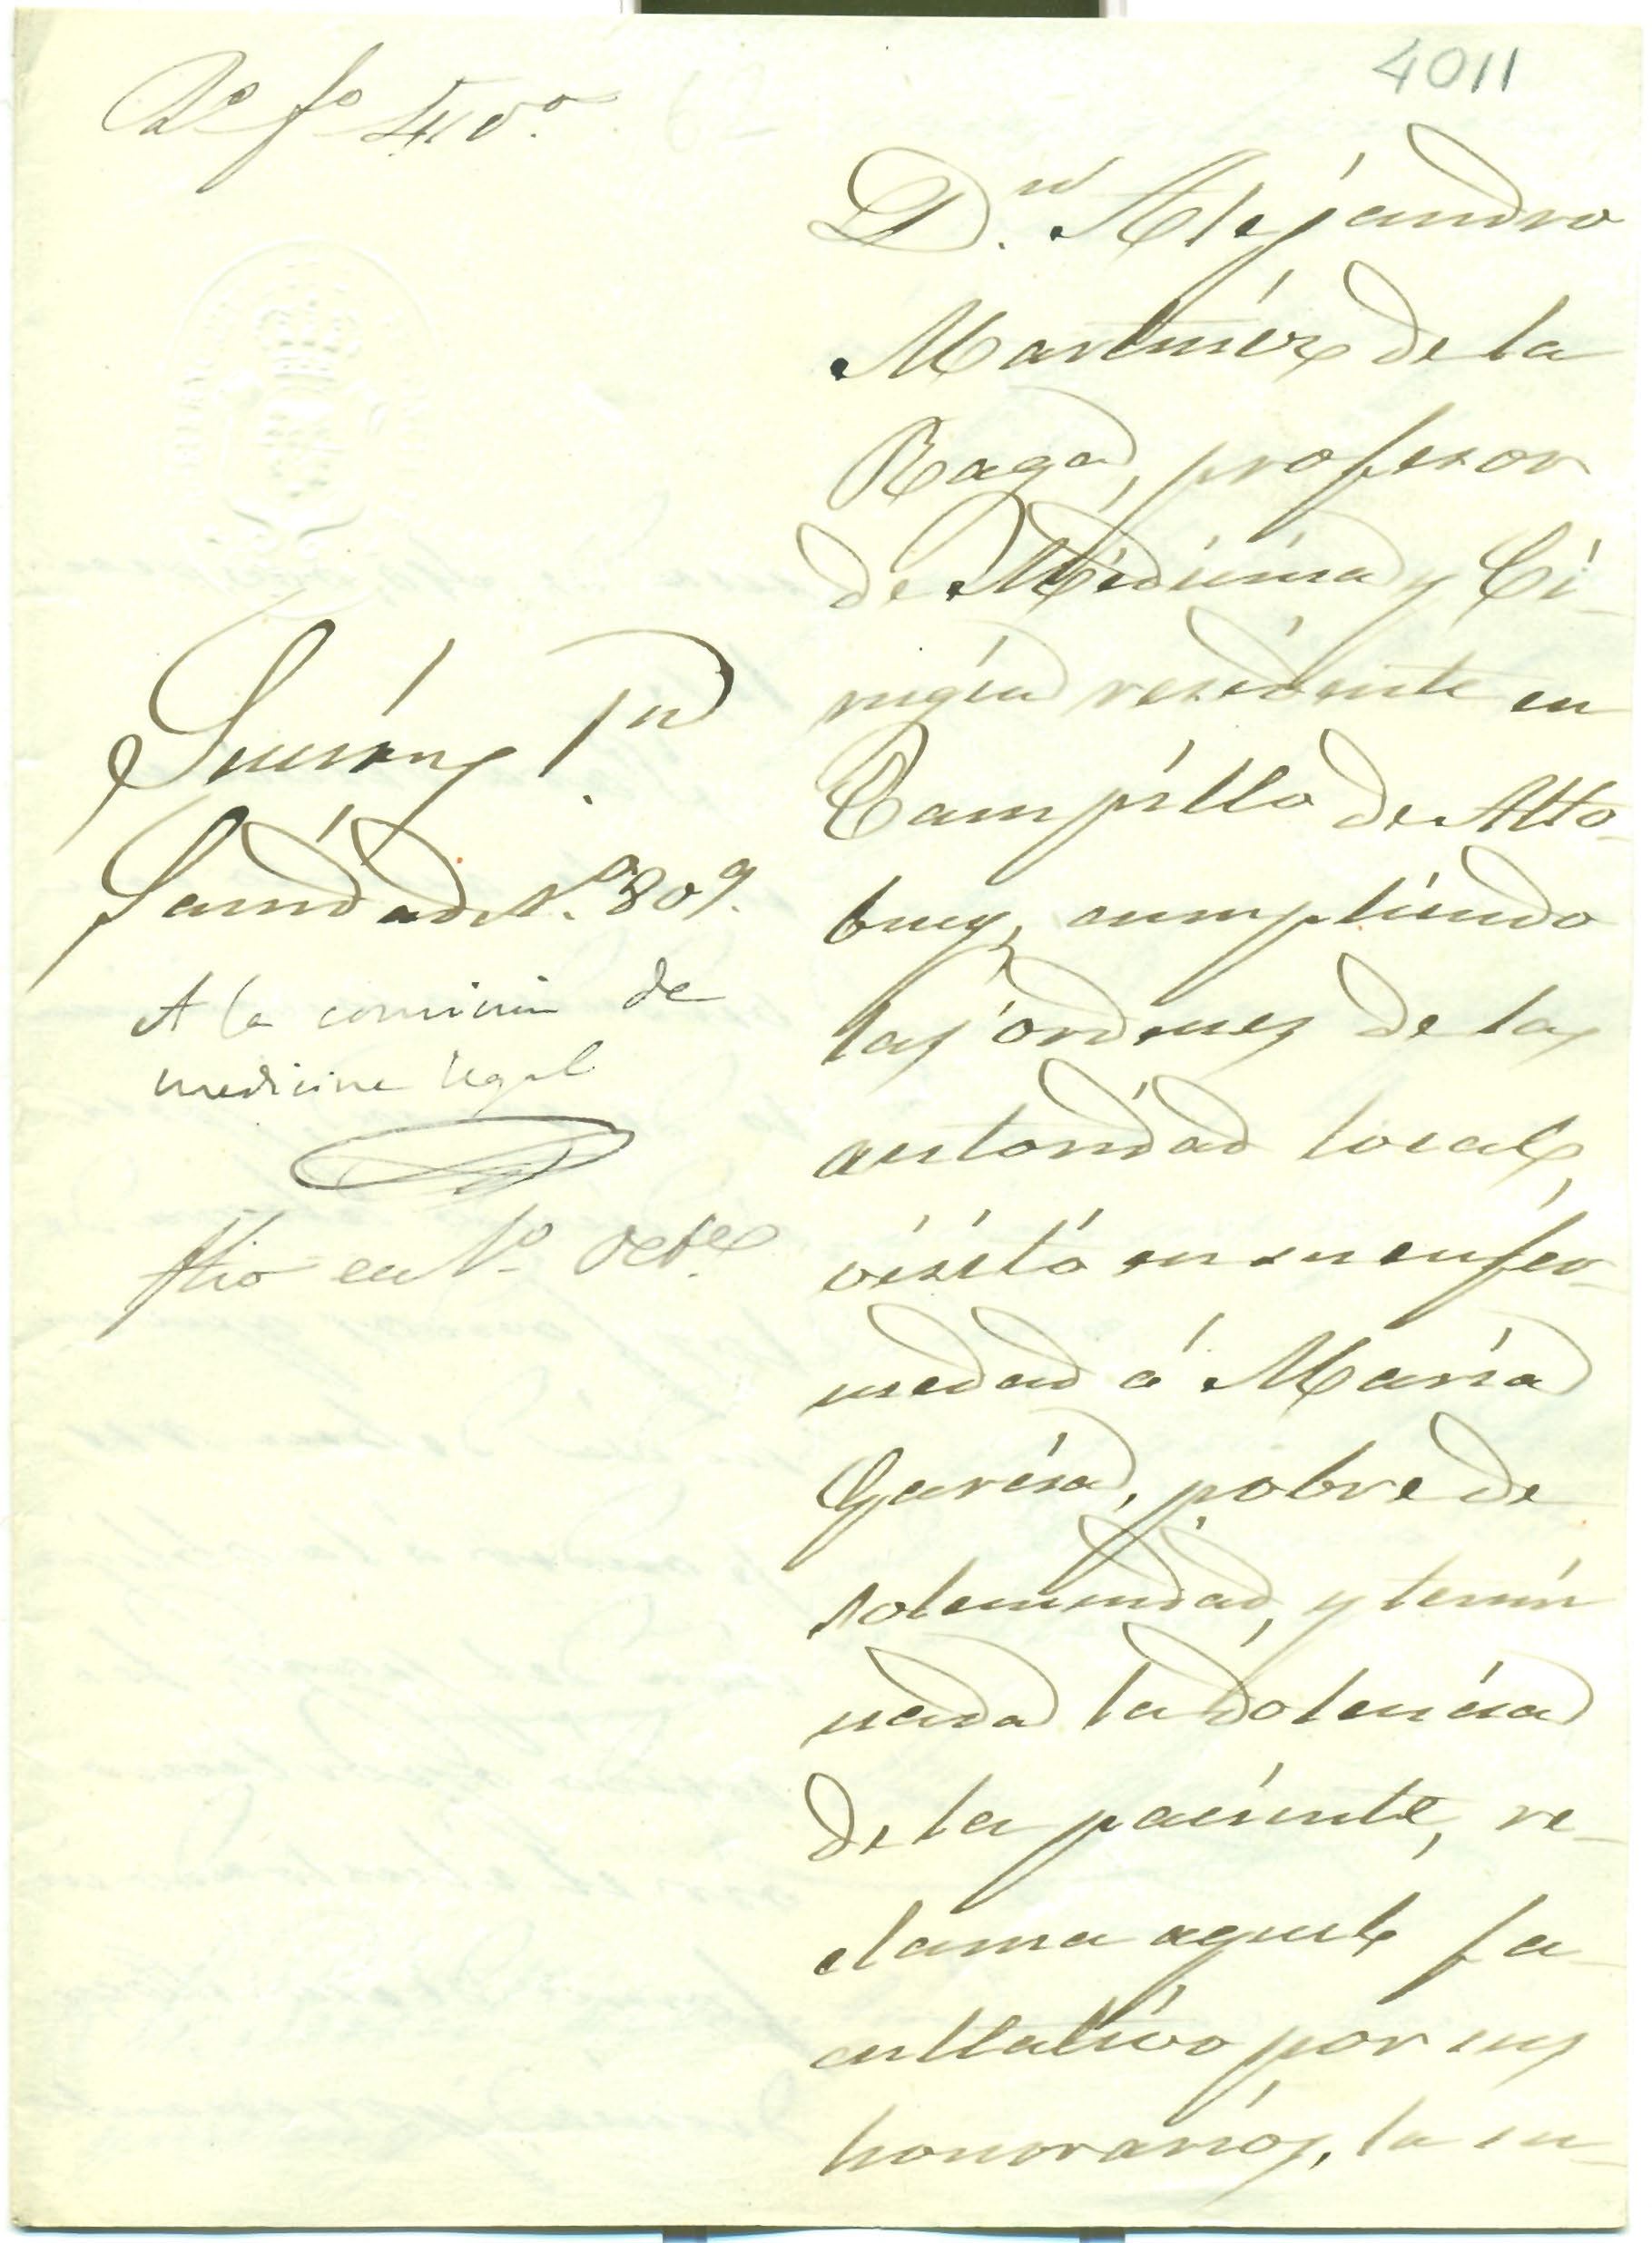 4011
Dn. Alejandro
Martinez de la
Raga, profesor
de Medicina y Ci-
rugía residente en
Campillo de Alto-
buey, cumpliendo
las órdenes de la
autoridad local,
visitó en su enfer-
medad á María
García, pobre de
solemnidad, y termi
nada la dolencia
de la paciente, re-
clama aquel fa-
cultativo por sus
honorarios, la su-
Sanidad N.º 809.
A la comision de
medicina legal